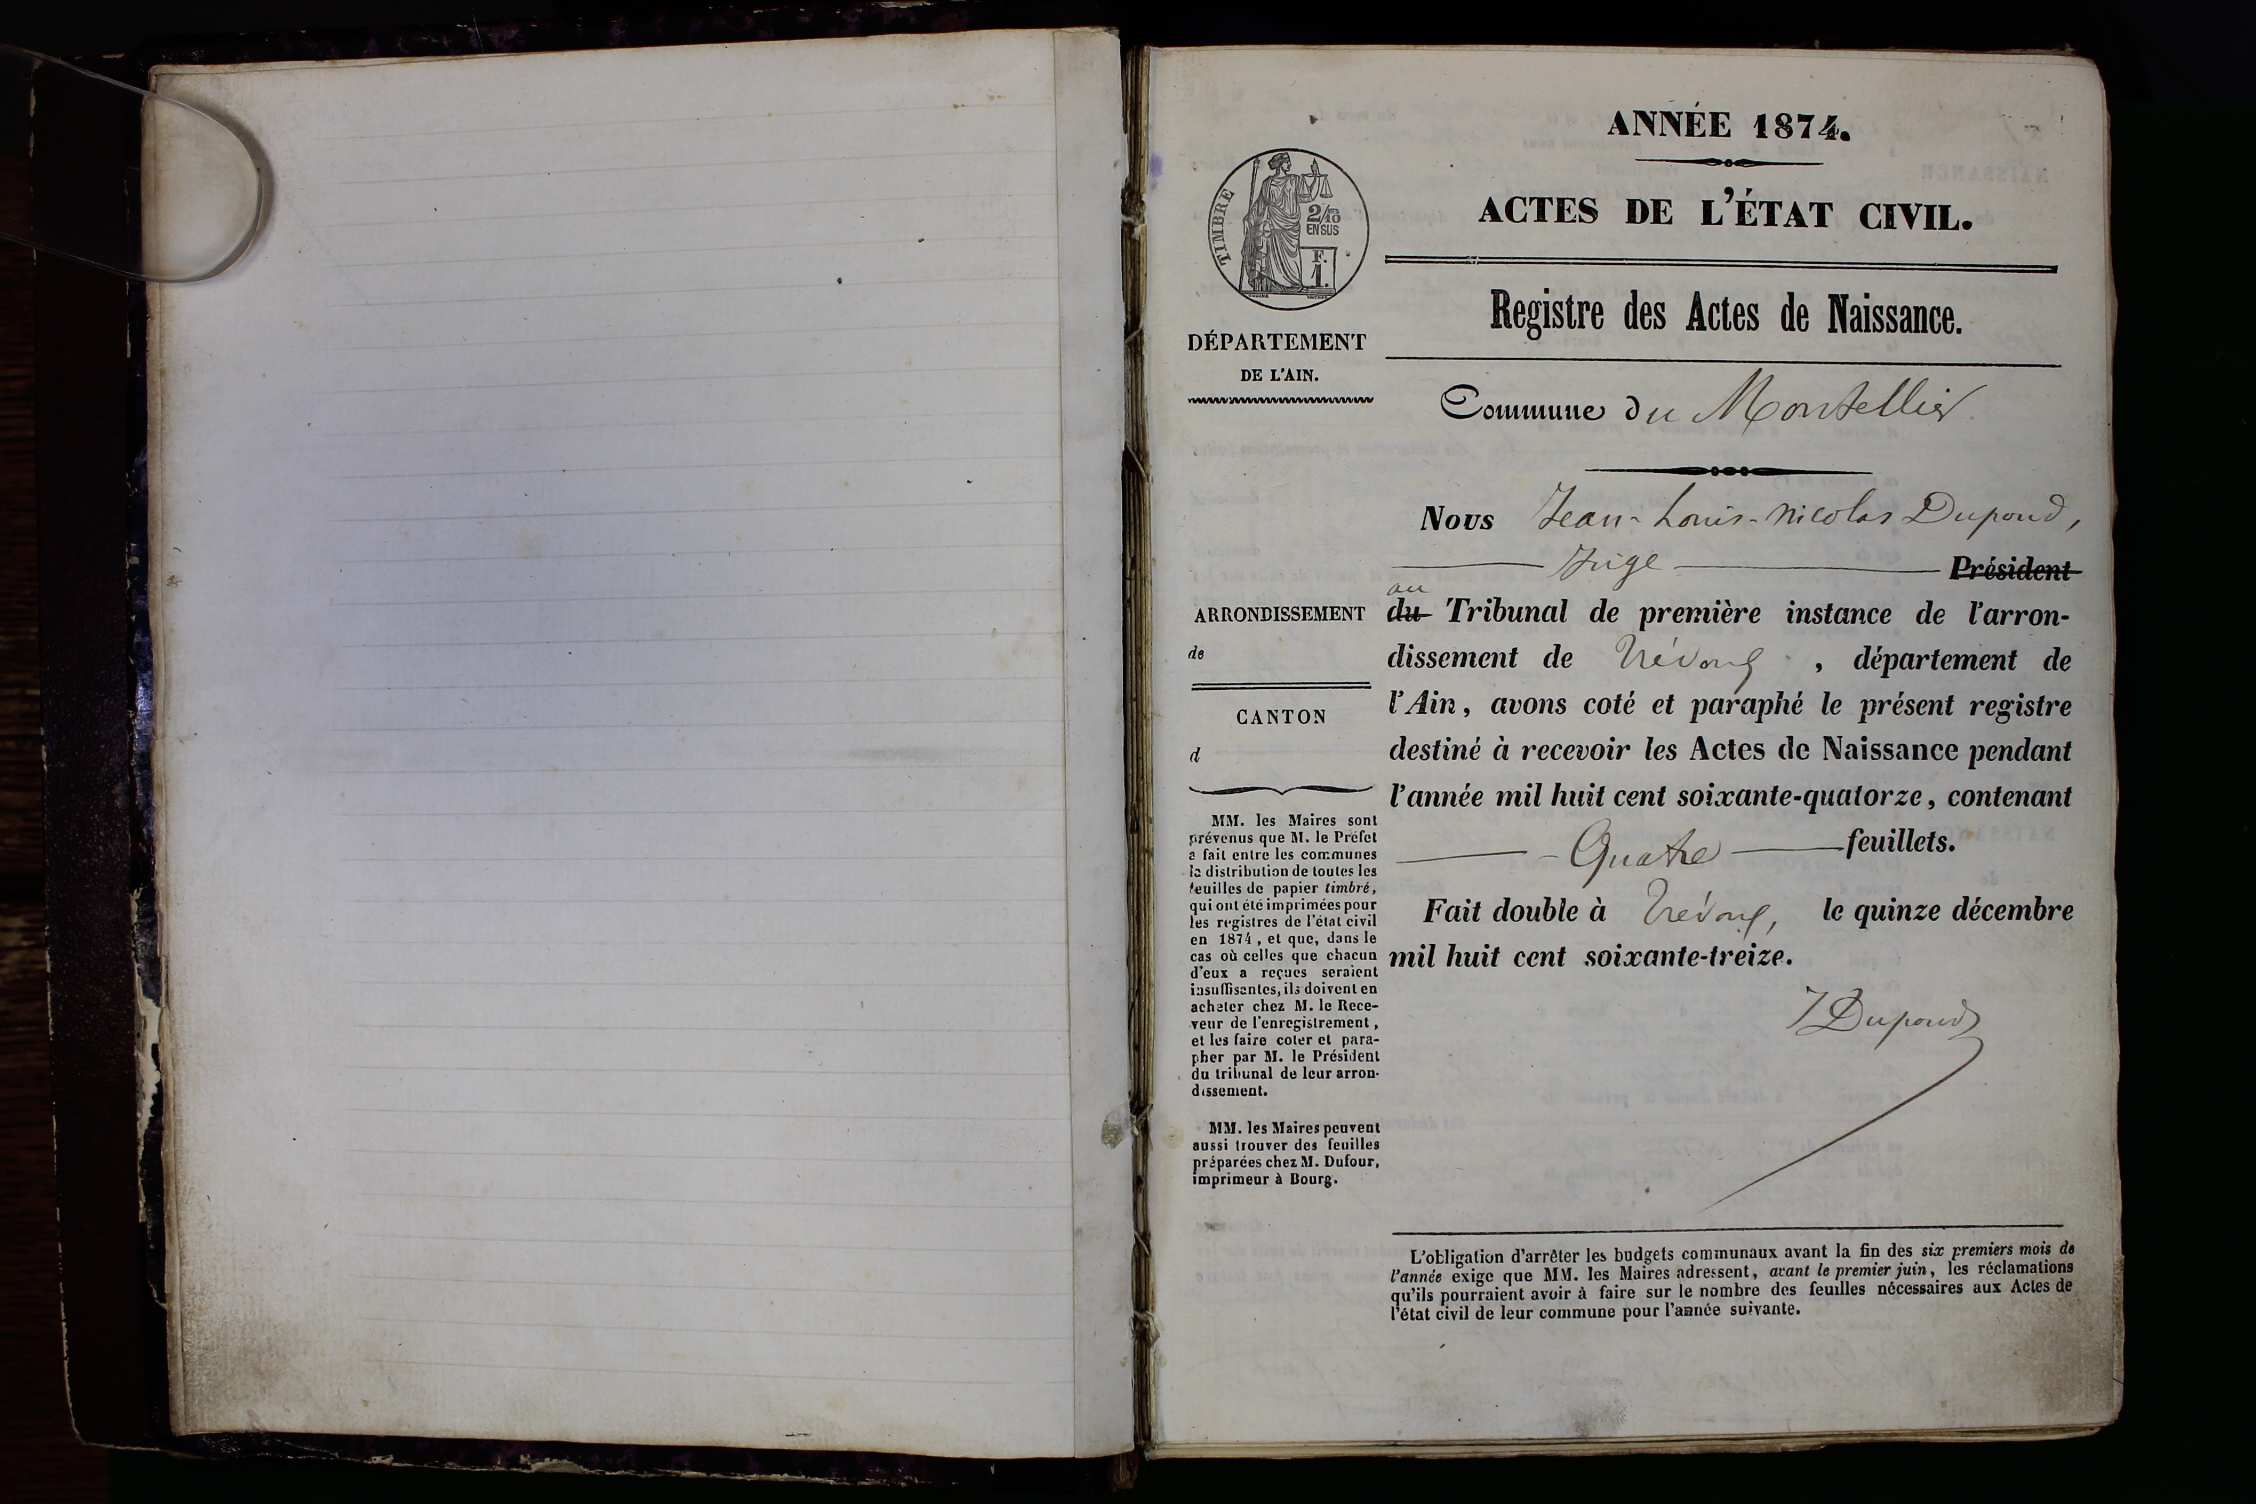 ANNÉE 1874.
ACTES DE L'ÉTAT CIVIL.
Registre des Actes de Naissance.
Commune du Montellier
Nous Jean-Louis-Nicolas Dupond,
Juge Président
au
du Tribunal de première instance de l'arron-
dissement de Trévoux, département de
l'Ain, avons coté et paraphé le présent registre
destiné à recevoir les Actes de Naissance pendant
l'année mil huit cent soixante-quatorze, contenant
Quatre feuillets.
Fait double à Trévoux, le quinze décembre
mil huit cent soixante-treize.
JDupond
TIMBRE
2/10es
EN SUS
F.
1.
DÉPARTEMENT
DE L'AIN.
ARRONDISSEMENT
de
CANTON
d
MM. les Maires sont
prévenus que M. le Préfet
a fait entre les communes
la distribution de toutes les
feuilles de papier timbré,
qui ont été imprimées pour
les registres de l'état civil
en 1874, et que, dans le
cas où celles que chacun
d'eux a reçues seraient
insuffisantes, ils doivent en
acheter chez M. le Rece-
veur de l'enregistrement,
et les faire coter et para-
pher par M. le Président
du tribunal de leur arron-
dissement.
MM. les Maires peuvent
aussi trouver des feuilles
préparées chez M. Dufour,
imprimeur à Bourg.
L'obligation d'arrêter les budgets communaux avant la fin des six premiers mois de
l'année exige que MM. les Maires adressent, avant le premier juin, les réclamations
qu'ils pourraient avoir à faire sur le nombre des feuilles nécessaires aux Actes de
l'état civil de leur commune pour l'année suivante.